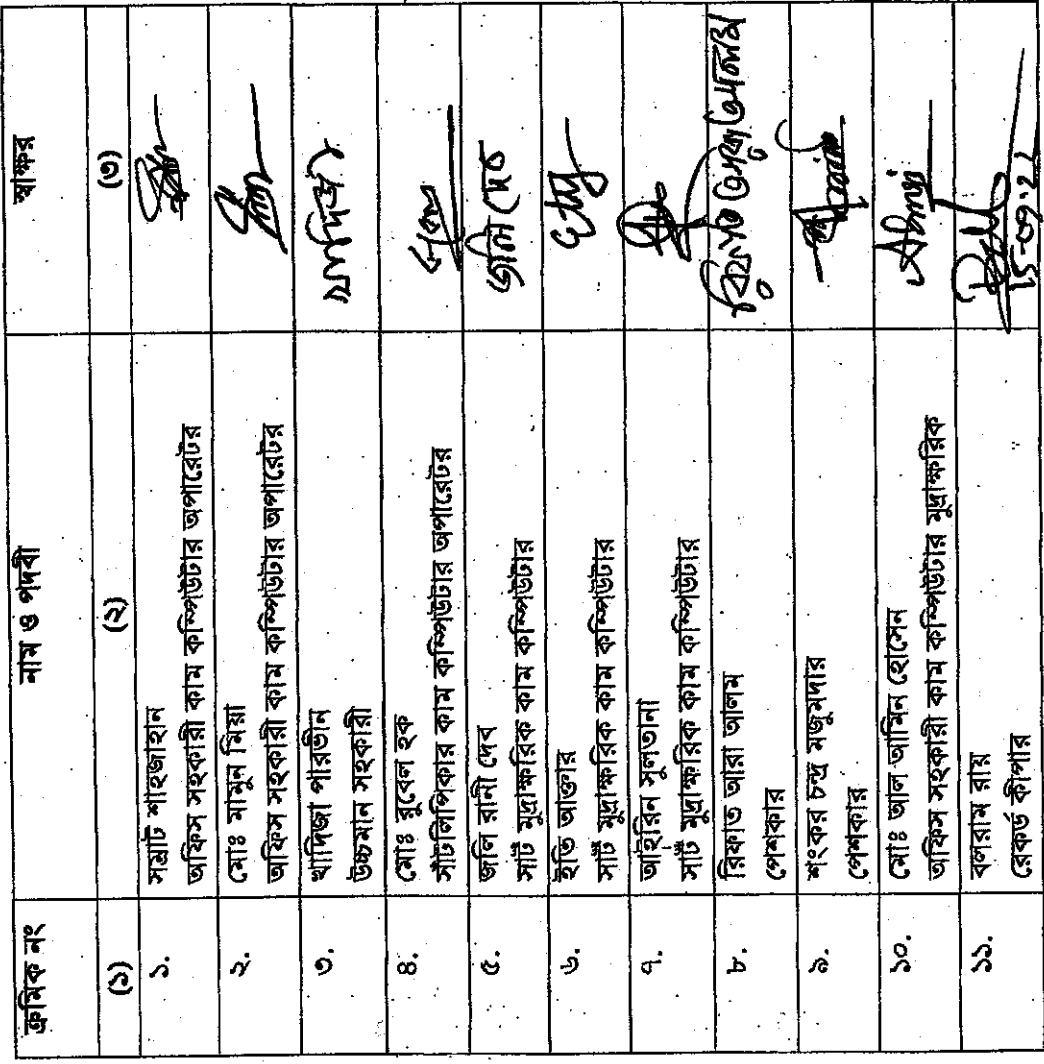 ক্রমিক নং নাম ও পদবী স্বাক্ষর
(১) (২) (৩)
১. সম্রাট শাহজাহান
অফিস সহকারী কাম কম্পিউটার অপারেটর
২. মোঃ মামুন মিয়া
অফিস সহকারী কাম কম্পিউটার অপারেটর
৩. খাদিজা পারভীন
উচ্চমান সহকারী
খাদিজা
৪. মোঃ রুবেল হক
সাঁটলিপিকার কাম কম্পিউটার অপারেটর
৫. জলি রানী দেব
সাট মুদ্রাক্ষরিক কাম কম্পিউটার
জলি দেব
৬. ইতি আক্তার
সাট মুদ্রাক্ষরিক কাম কম্পিউটার
৭. আইরিন সুলতানা
সাট মুদ্রাক্ষরিক কাম কম্পিউটার
৮. রিফাত আরা আলম
পেশকার
৯. শংকর চন্দ্র মজুমদার
পেশকার
১০. মোঃ আল আমিন হোসেন
অফিস সহকারী কাম কম্পিউটার মুদ্রাক্ষরিক
১১. বলরাম রায়
রেকর্ড কীপার